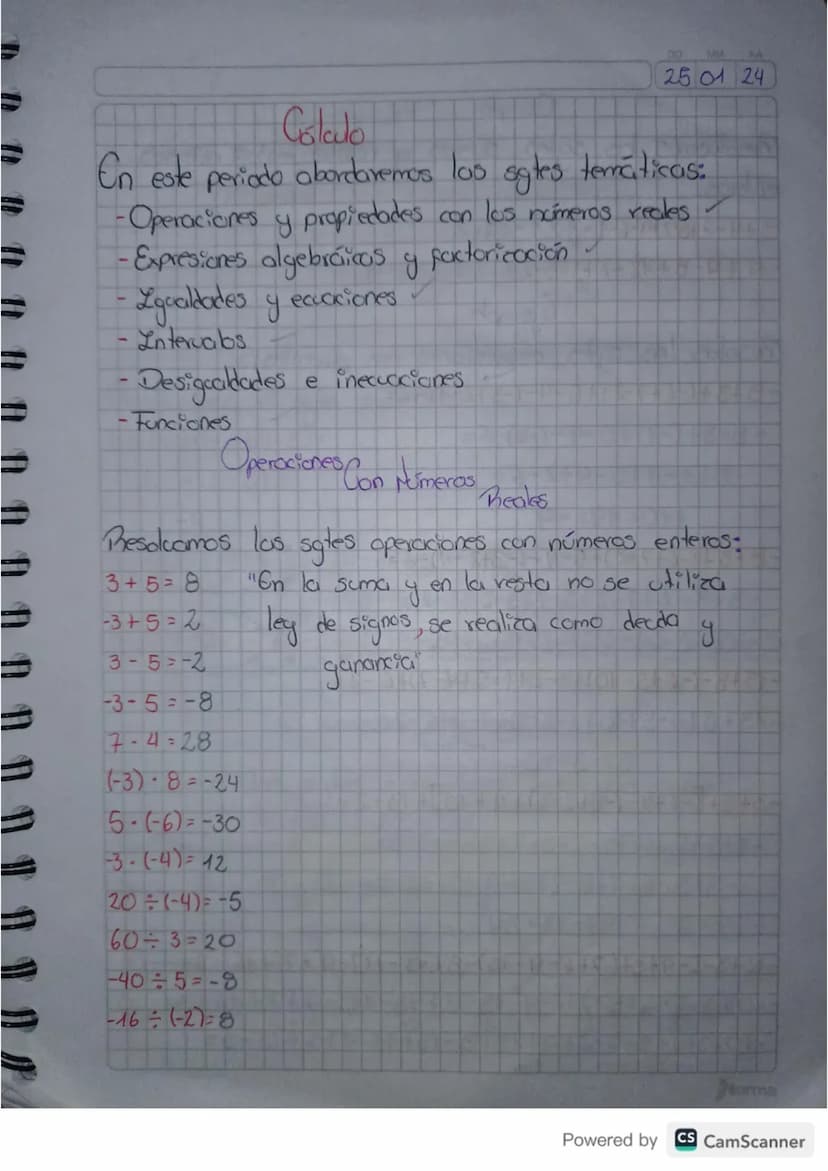 DD MM AA
25 01 24
Cálculo
En este periodo abordaremos las sgtes temáticas:
- Operaciones y propiedades con los números reales ✓
- Expresiones algebráicas y factorización ✓
- Igualdades y ecuaciones ✓
- Intervalos
- Desigualdades e inecuaciones
- Funciones
Operaciones Con Números Reales
Resolvamos las sgtes operaciones con números enteros:
3 + 5 = 8 "En la suma y en la resta no se utiliza
-3 + 5 = 2 ley de signos, se realiza como deuda y
3 - 5 = -2 ganancia"
-3 - 5 = -8
7 · 4 = 28
(-3) · 8 = -24
5 · (-6) = -30
-3 · (-4) = 12
20 ÷ (-4) = -5
60 ÷ 3 = 20
-40 ÷ 5 = -8
-16 ÷ (-2) = 8
norma
Powered by CS CamScanner